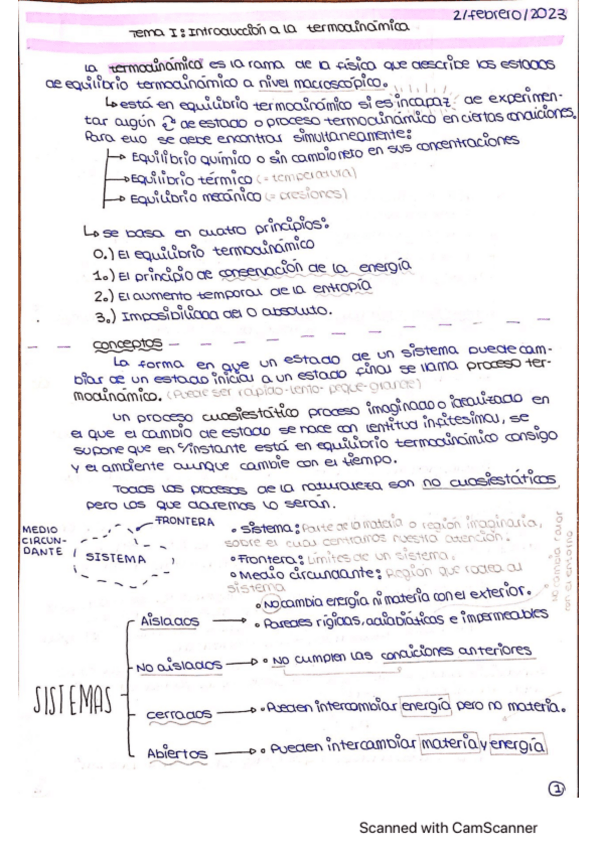 2/febrero/2023
Tema I: Introducción a la termodinámica
La termodinámica es la rama de la física que describe los estados
de equilibrio termodinámico a nivel macroscópico.
↳ está en equilibrio termodinámico si es incapaz de experimen-
tar algún de estado o proceso termodinámico en ciertas condiciones.
Para ello se debe encontrar simultaneamente:
→ Equilibrio químico o sin cambio neto en sus concentraciones
→ Equilibrio térmico (= temperatura)
→ Equilibrio mecánico (= presiones)
↳ se basa en cuatro principios:
0.) El equilibrio termodinámico
1.) El principio de conservación de la energía
2.) El aumento temporal de la entropía
3.) Imposibilidad del 0 absoluto.
conceptos
La forma en que un estado de un sistema puede cam-
biar de un estado inicial a un estado final se llama proceso ter-
modinámico. (Puede ser rápido-lento- peque-grande)
Un proceso cuasiestático proceso imaginado o idealizado en
el que el cambio de estado se hace con lentitud infitesimal, se
supone que en c/instante está en equilibrio termodinámico consigo
y el ambiente aunque cambie con el tiempo.
Todos los procesos de la naturaleza son no cuasiestáticos,
pero los que daremos lo serán.
MEDIO
CIRCUN-
DANTE
FRONTERA
SISTEMA
• Sistema: Parte de la materia o región imaginaria,
sobre el cual centramos nuestra atención.
• Frontera: Límites de un sistema.
• Medio circundante: Región que rodea al
sistema
No cambia
con el entorno
SISTEMAS
Aislados → • No cambia energía ni materia con el exterior.
• Paredes rígidas, adiabáticas e impermeables
No aislados → • No cumplen las condiciones anteriores
cerrados → • Pueden intercambiar energía pero no materia.
Abiertos → • Pueden intercambiar materia y energía
1
Scanned with CamScanner